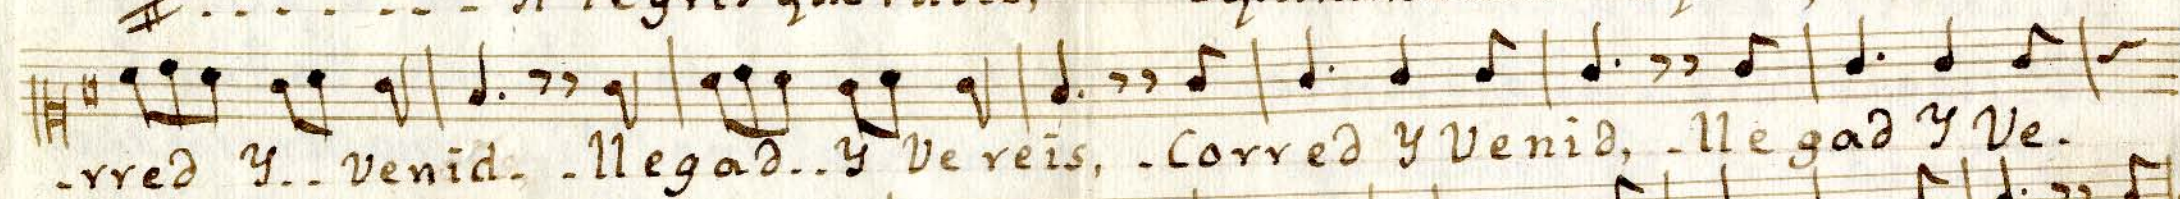 -rred Y.. venid. .llegad..Y Vereis, .Corred Y Venid, .llegad Y Ve.